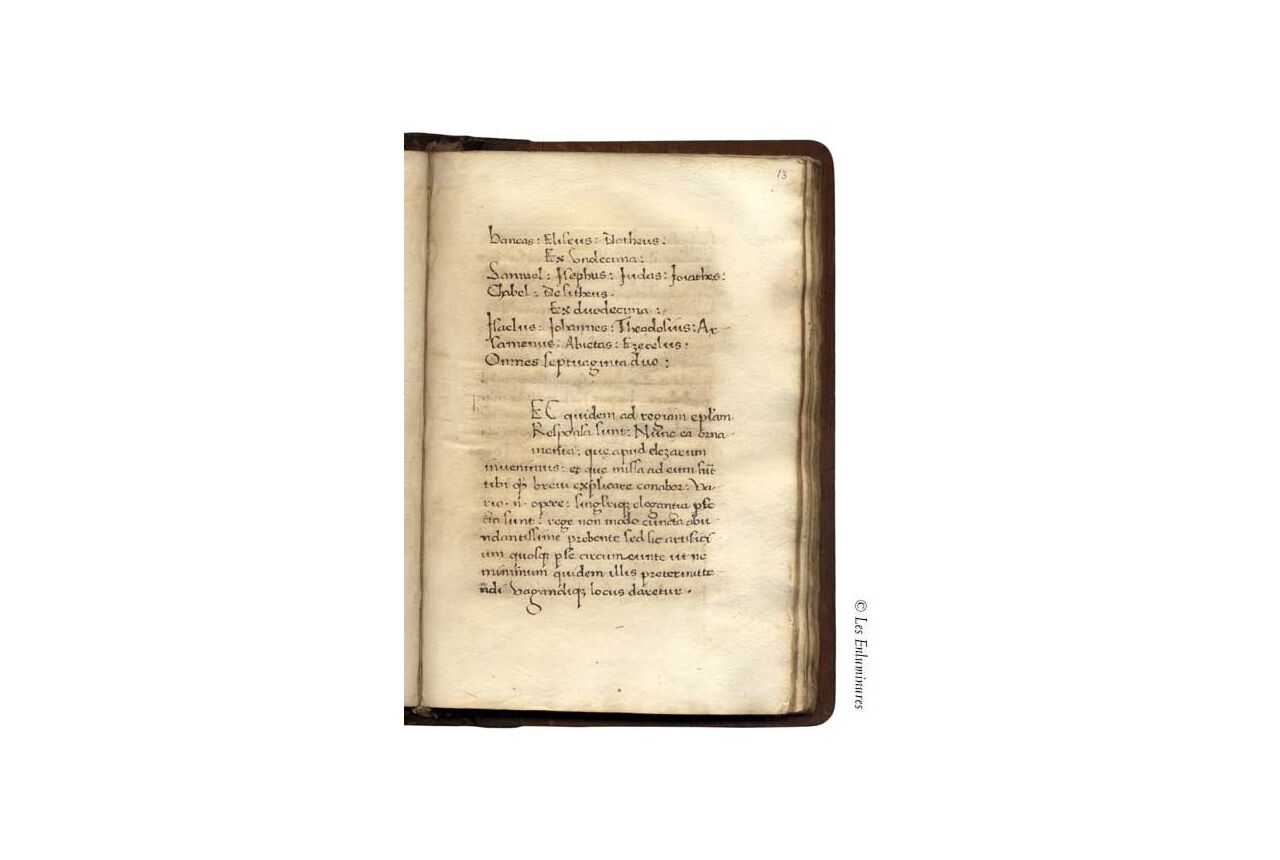 13
baneas : Eliseus : Datheus :
Ex undecima :
Samuel : Josephus : Judas : Jonathes :
Chabel : Desitheus .
Ex duodecima :
Isaelus : Johannes : Theodosius : Ar
samenus : Abietas : Ezecelus :
Omnes septuaginta duo :
EC quidem ad regiam eplam
Responsa sunt : Nunc ea orna
menta : que apud elezarum
invenimus : et que missa ad eum sut
tibi breui explicare conabor : Va-
rio . n . opere : singlisq elegantia pfe
cta sunt : rege non modo cuncta abu
ndantissime prebente sed sic artifici
um quosq pse circumeunte ut ne
minimum quidem illis pretermitte
ndi vagandiq locus daretur .
© Les Enluminures